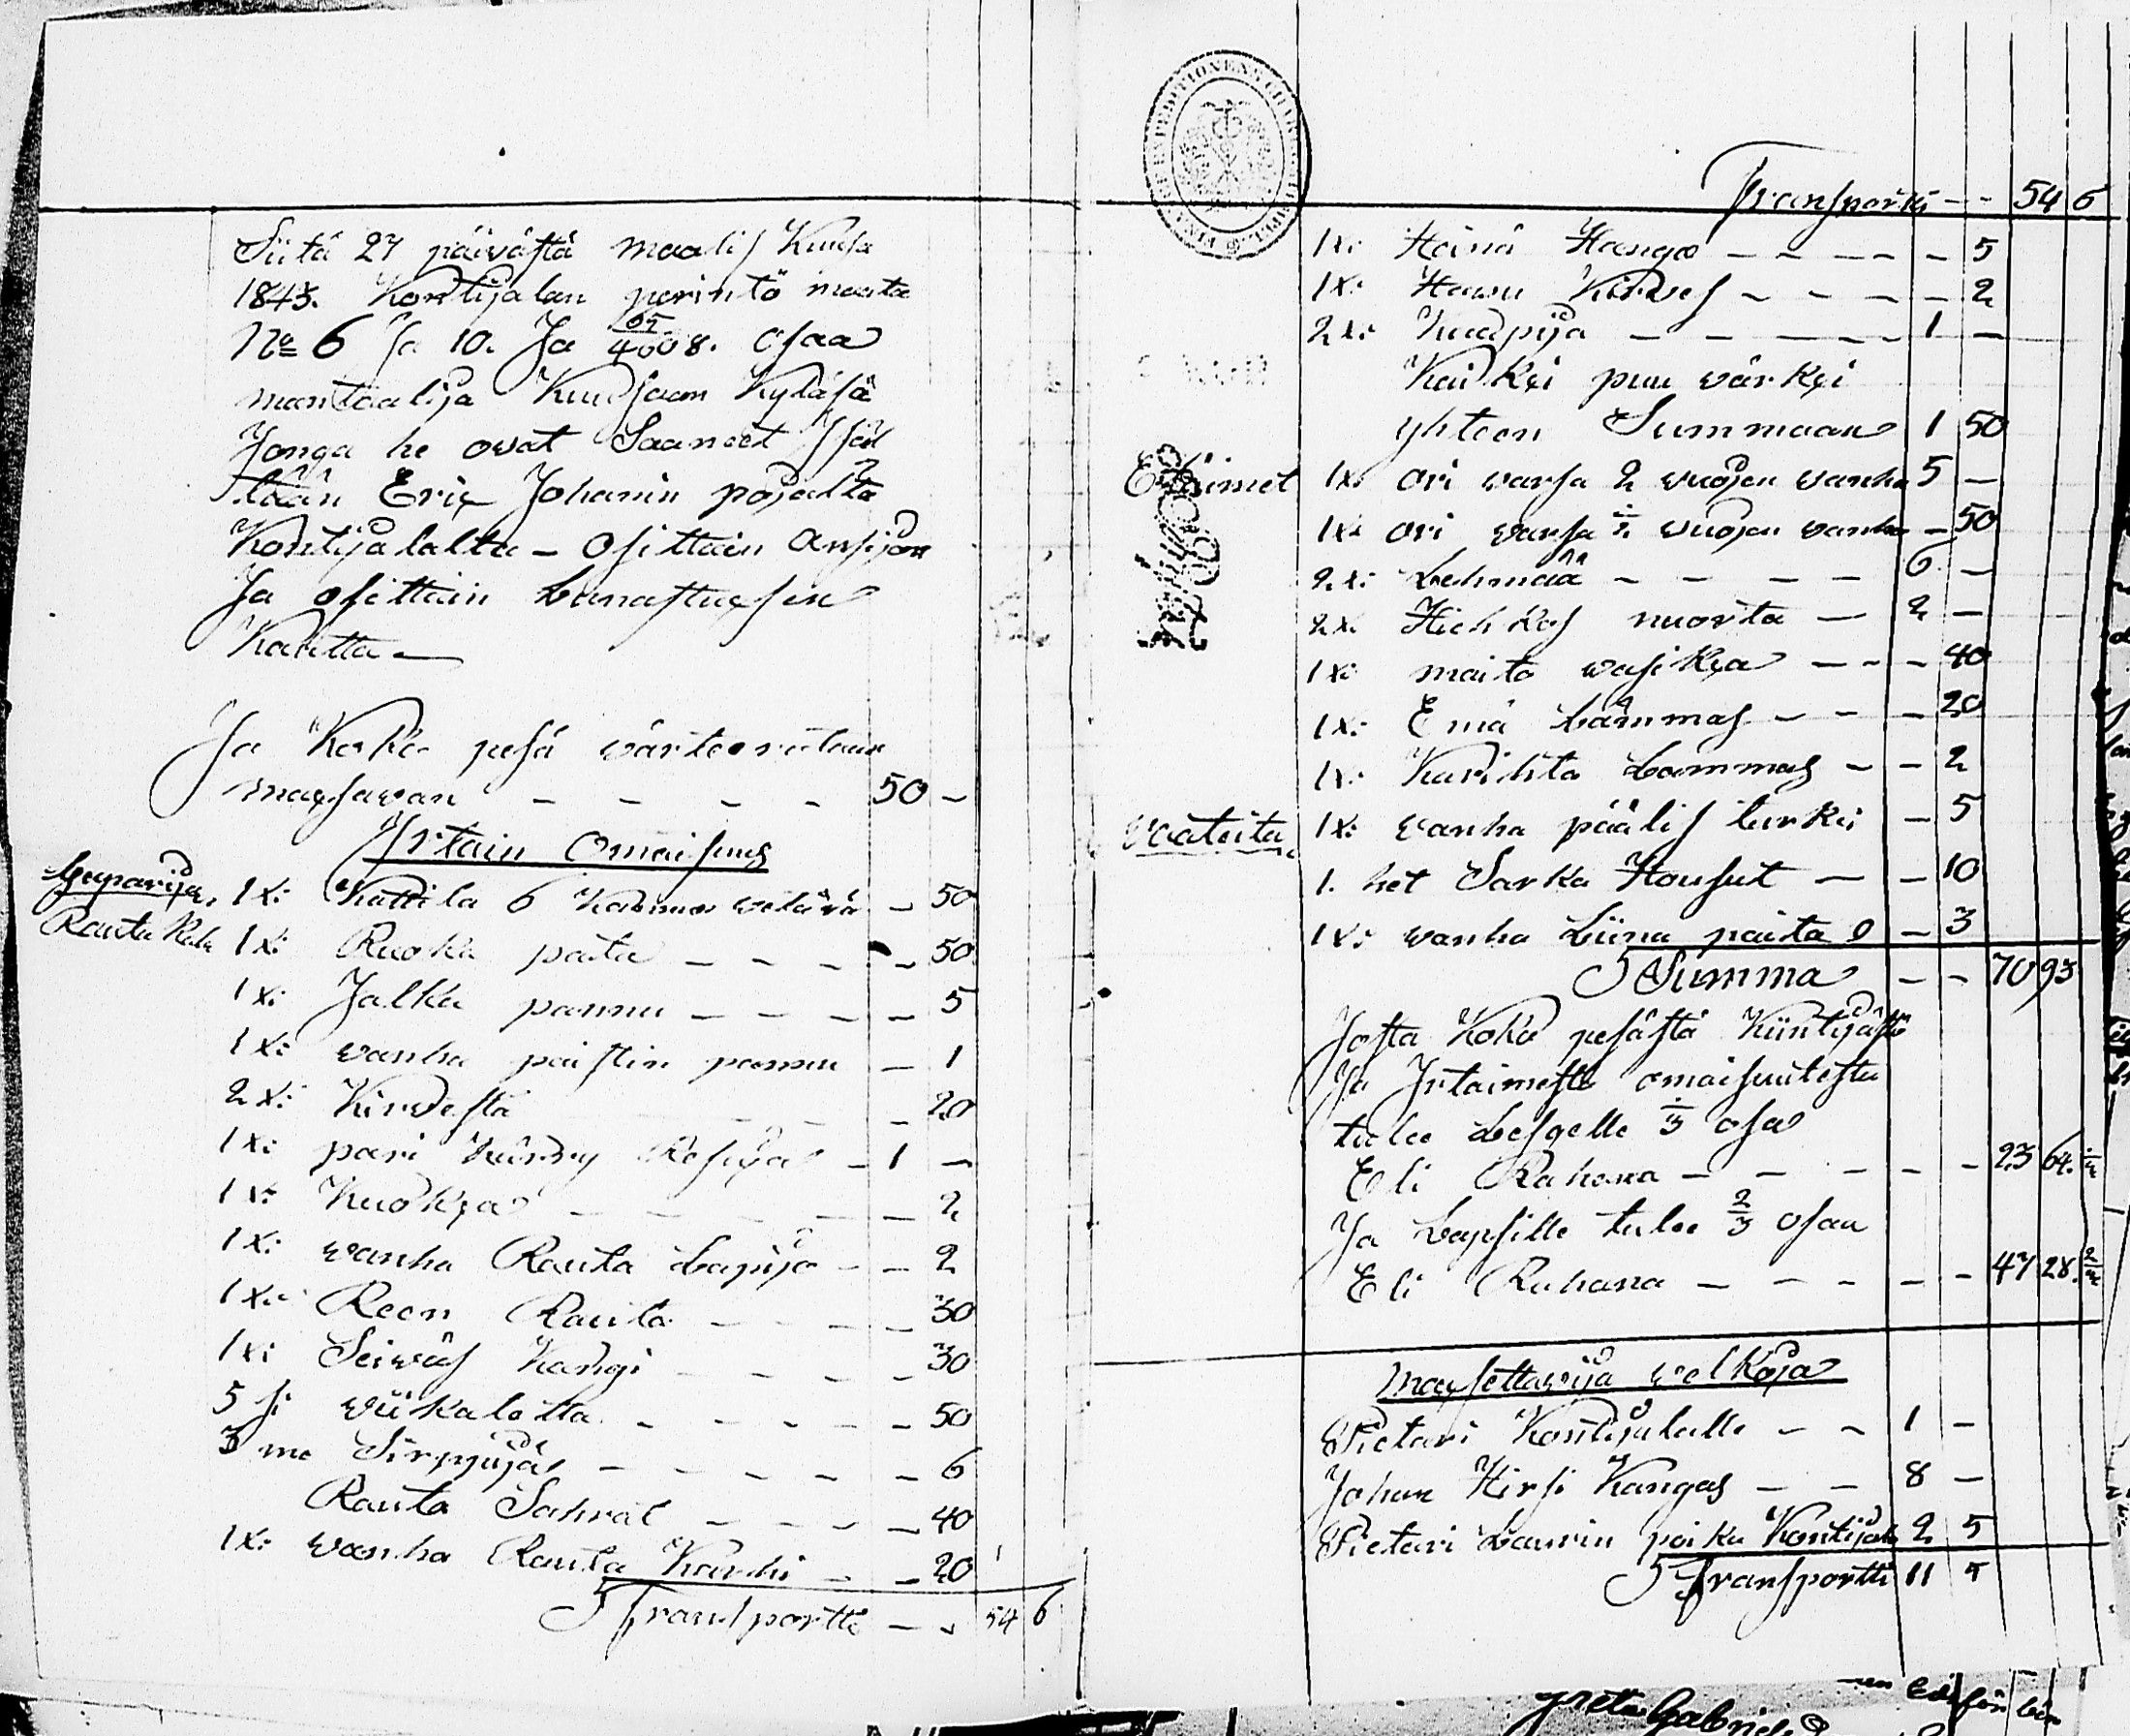 Siitä 27 päivästä maalis Kuusa
1843. Kontijalan perintö maata
No 6 ja 10. Ja 05/4608. osaa
mantaalija Kuusaan Kyläsä
Jonga he owat Saaneet Isäl
tään Eric Johanin pojalta
Kontijalalta - Osittain ansijon
Ja osittain Lunastuxsen
Kautta -
Ja Koko pesä värteerataan
maxsawan - - - - 50 -
Irtain Omaisuus
Cuparija. 1 x: Kattila 6 Kannua vetävä - 50
Rauta Kalu 1 x: Ruoka pata - - - - 50
1 x: Jalka pannu - - - - 5
1 x: wanha paistin pannu - 1
2 x: Kirvestä - 20
1 x: pari Kärry - 1 -
1 x: Kuokxa - - - 2
1 x: wanha Rauta Lapija - - 2
1 x: Reen Rauta - - - - 30
1 x: Seiwäs Kangi - - - - 30
5 wiikatetta - - - - - 50
3 me Sirppijä - - - - - 6
Rauta Sahrat - - - - 40
1 x: wanha Rauta Karhi - - 20
Transportti - - 54 6
Transportti - - 54 6
1 x: Heinä Hango - - - - - 5
1 x: Kirves - - - - 2
2 x: - - - - - 1 -
Kaikki puu värkxi
yhteen Summaan 1 50
Eläimet 1 x: ori varsa 2 vuojen vanha 5 -
1 x: ori varsa 1/2 vuojen vanha - 50
2 x: Lehmää - - - - 6 -
2 x: Hiehkos nuorta - 2 -
1 x: maito wasikxa - - - 40
1 x: Emä Lammas - - - 20
1 x: Karihta Lammas - - 2
Vaateita 1 x: wanha päälis turkki - 5
1. het Sarka Housut - - 10
1 x: wanha Liina paita - 3
Summa - - 70 93
Josta Koko pesästä Kiintijästä
Ja Irtaimesta omaisuutesta
tulee Lesgelle 1/3 osa
Eli Rahana - - - - - 23 64. 1/3
Ja Lapsille tulee 2/3 osaa
Eli Rahana - - - - - 47 28. 2/3
Maxsettawija welkoja
Pietari Kontijalalle - - 1 -
Johan Hirsi Kangas - - 8 -
Pietari Laurin poika Kontijala 2 5
Transportti 11 5
Greta Gabriels